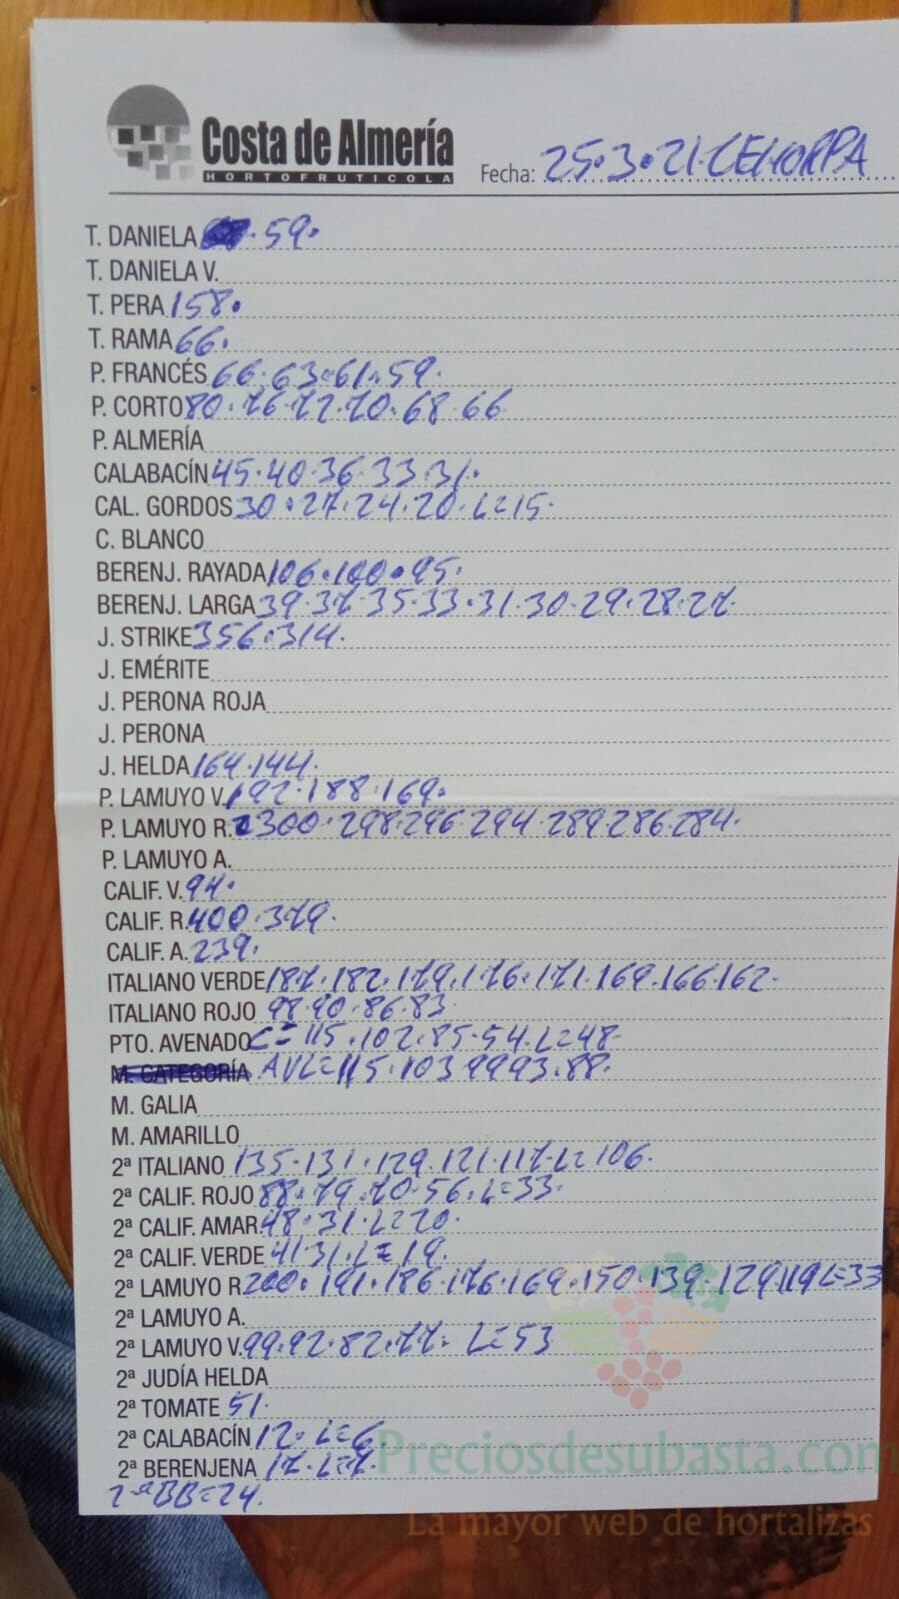 Costa de Almería
HORTOFRUTICOLA
Fecha: 25.3.21.CEHORPA
T. DANIELA . 59.
T. DANIELA V.
T. PERA 158.
T. RAMA 66.
P. FRANCÉS 66.63.61.59.
P. CORTO 80.76.72.70.68.66
P. ALMERÍA
CALABACÍN 45.40.36.33.31.
CAL. GORDOS 30.27.24.20.L=15.
C. BLANCO
BERENJ. RAYADA 106.100.95.
BERENJ. LARGA 39.37.35.33.31.30.29.28.27.
J. STRIKE 356.314.
J. EMÉRITE
J. PERONA ROJA
J. PERONA
J. HELDA 164.144.
P. LAMUYO V. 192.188.169.
P. LAMUYO R. 300.298.296.294.289.286.284.
P. LAMUYO A.
CALIF. V. 94.
CALIF. R. 400.379.
CALIF. A. 239.
ITALIANO VERDE 187.182.179.176.171.169.166.162.
ITALIANO ROJO 98.90.86.83.
PTO. AVENADO C=115.102.85.54.L=48.
M. CATEGORÍA AVL=115.103 99 93.88.
M. GALIA
M. AMARILLO
2ª ITALIANO 135.131.129.121.117.L=106.
2ª CALIF. ROJO 88.79.70.56.L=33.
2ª CALIF. AMAR. 48.31.L=20.
2ª CALIF. VERDE 41 31.L=19.
2ª LAMUYO R. 200.191.186.176.169.150.139.129.119 L=33
2ª LAMUYO A.
2ª LAMUYO V. 99.92.82.77. L=53
2ª JUDÍA HELDA
2ª TOMATE 51.
2ª CALABACÍN 12. L=6.
2ª BERENJENA 17.L=7.
2ªBB=24.
Preciosdesubasta.com
La mayor web de hortalizas